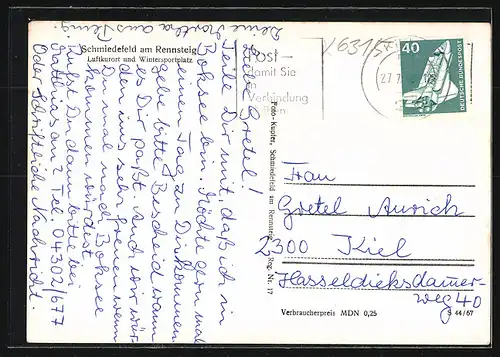 Deine Martha aus Peine.
Schmiedefeld am Rennsteig
Luftkurort und Wintersportplatz
Liebe Gretel!
Teile Dir mit, daß ich in
Bohsee bin. Möchte gern mal
einen Tag zu Dir kommen
gebe bitte Bescheid wann
es Dir paßt. Auch wir wür-
den uns sehr freuen wenn
Du mal nach Bohsee
kommen würdest.
Rufst Du dann bitte bei
Matthias an? Tel 04302/677
Oder schriftliche Nachricht.
Foto-Kupfer, Schmiedefeld am Rennsteig Reg. Nr. 17
Post –
damit Sie
in
Verbindung
40
DEUTSCHE BUNDESPOST
Frau
Gretel Aurich
2300 Kiel
Hasseldieksdamer-
weg 40
Verbraucherpreis MDN 0,25
S 44/67